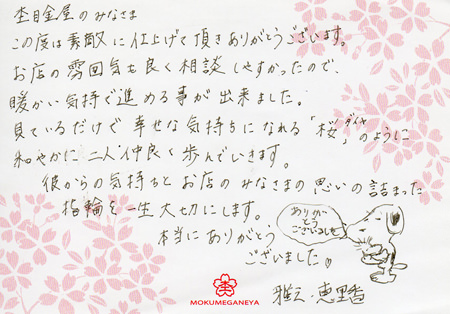 杢目金屋のみなさま
この度は素敵に仕上げて頂きありがとうございます。
お店の雰囲気も良く相談しやすかったので、
暖かい気持で進める事が出来ました。
見ているだけで幸せな気持ちになれる「桜ダイヤ」のように
和やかに二人仲良く歩んでいきます。
彼からの気持ちとお店のみなさまの思いの詰まった
指輪を一生大切にします。
本当にありがとう
ございました。
ありがとうございました
雅之・恵里香
MOKUMEGANEYA